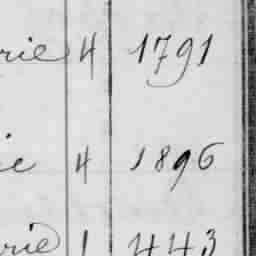 rie 4 1791
ie 4 1896
rie 1 443